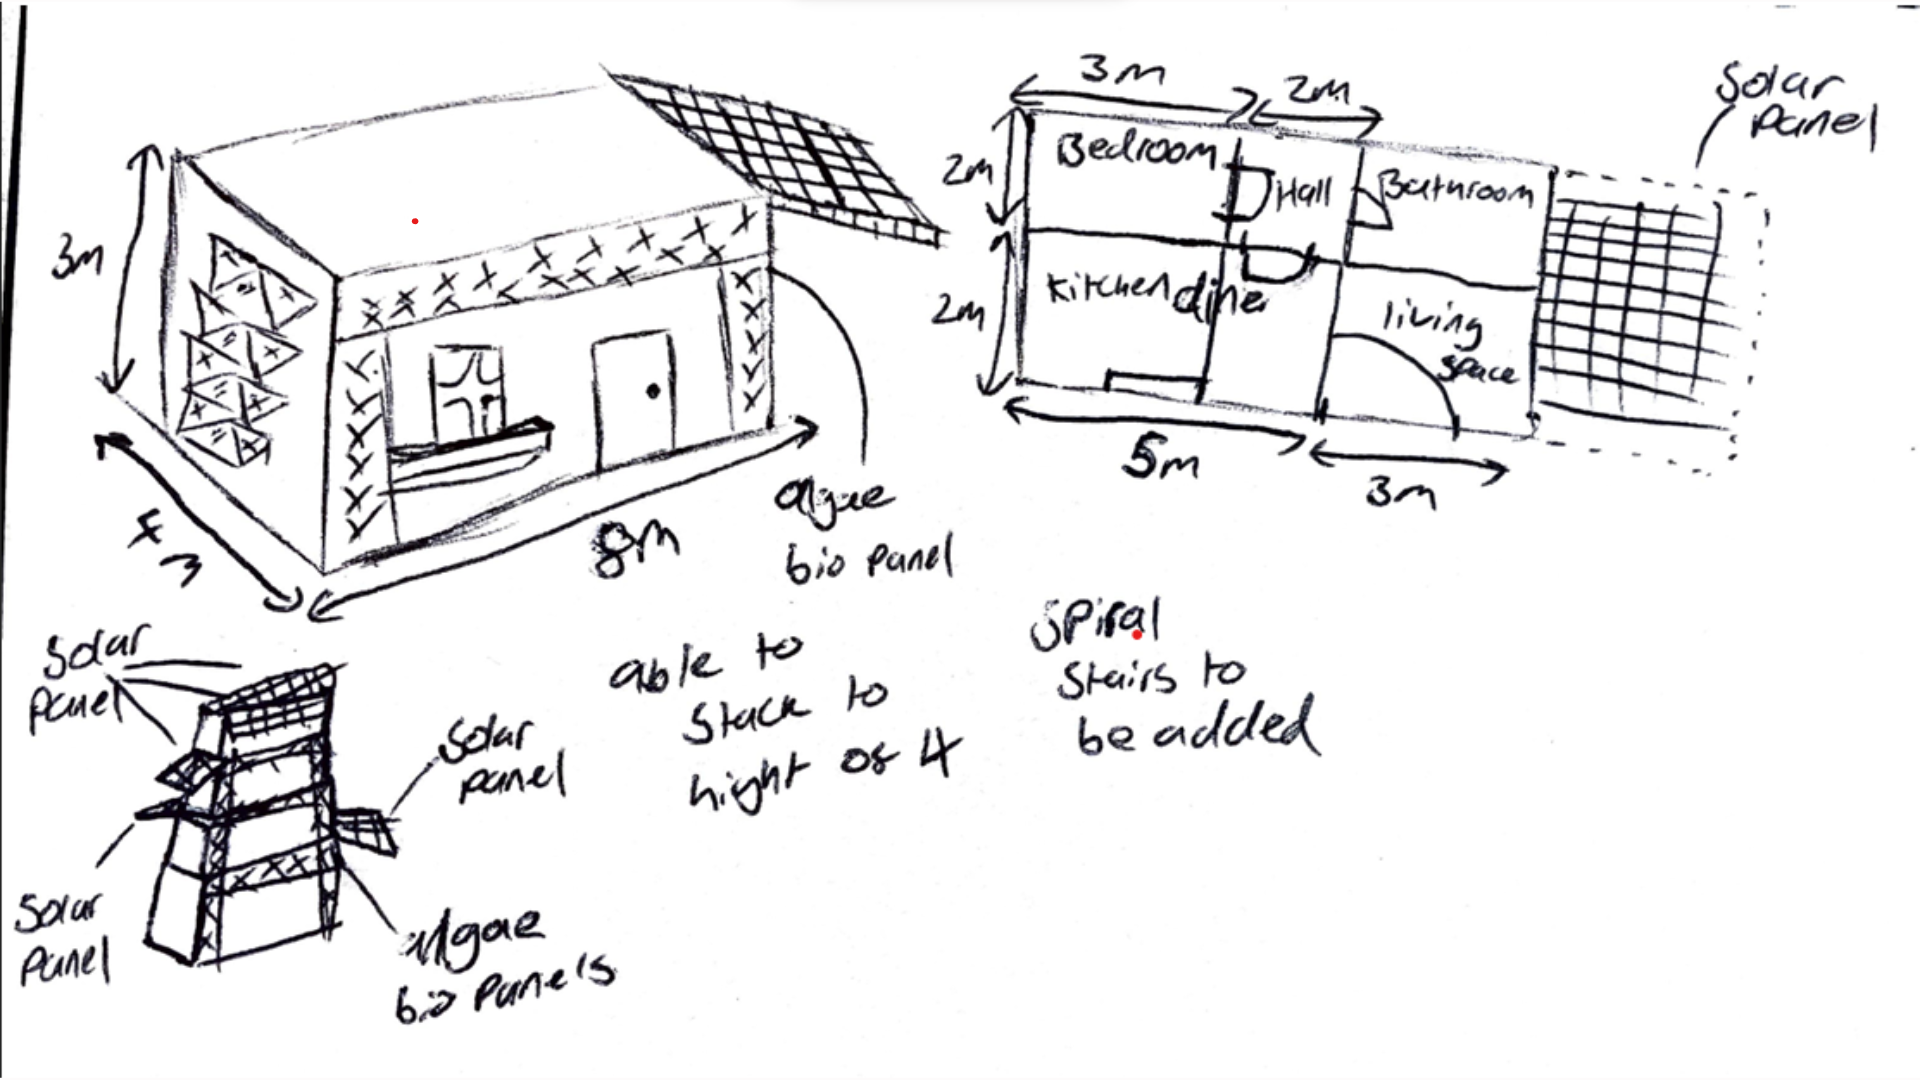 3m
8m
algae
bio panel
3m
2m
Solar
Panel
2m
Bedroom
Hall
Bathroom
2m
Kitchen diner
living
space
5m
3m
Solar
panel
Solar
panel
Solar
Panel
algae
bio panels
able to
Stack to
hight of 4
Spiral
Stairs to
be added